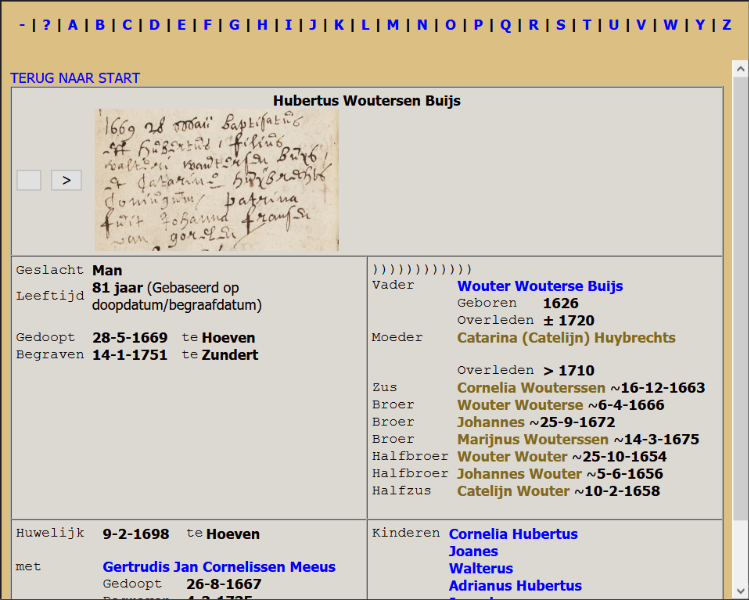 - | ? | A | B | C | D | E | F | G | H | I | J | K | L | M | N | O | P | Q | R | S | T | U | V | W | Y | Z
TERUG NAAR START
Hubertus Woutersen Buijs
1669 28 maii baptisatus
est Hubertus filius
walteri woutersen Buijs
et Catarine Huijbrechts
Coniugum patrina
fuit Johanna fransen
van
>
Geslacht Man
Leeftijd 81 jaar (Gebaseerd op
doopdatum/begraafdatum)
Gedoopt 28-5-1669 te Hoeven
Begraven 14-1-1751 te Zundert
))))))))))))
Vader Wouter Wouterse Buijs
Geboren 1626
Overleden ± 1720
Moeder Catarina (Catelijn) Huybrechts
Overleden > 1710
Zus Cornelia Wouterssen ~16-12-1663
Broer Wouter Wouterse ~6-4-1666
Broer Johannes ~25-9-1672
Broer Marijnus Wouterssen ~14-3-1675
Halfbroer Wouter Wouter ~25-10-1654
Halfbroer Johannes Wouter ~5-6-1656
Halfzus Catelijn Wouter ~10-2-1658
Huwelijk 9-2-1698 te Hoeven
met Gertrudis Jan Cornelissen Meeus
Gedoopt 26-8-1667
Kinderen Cornelia Hubertus
Joanes
Walterus
Adrianus Hubertus